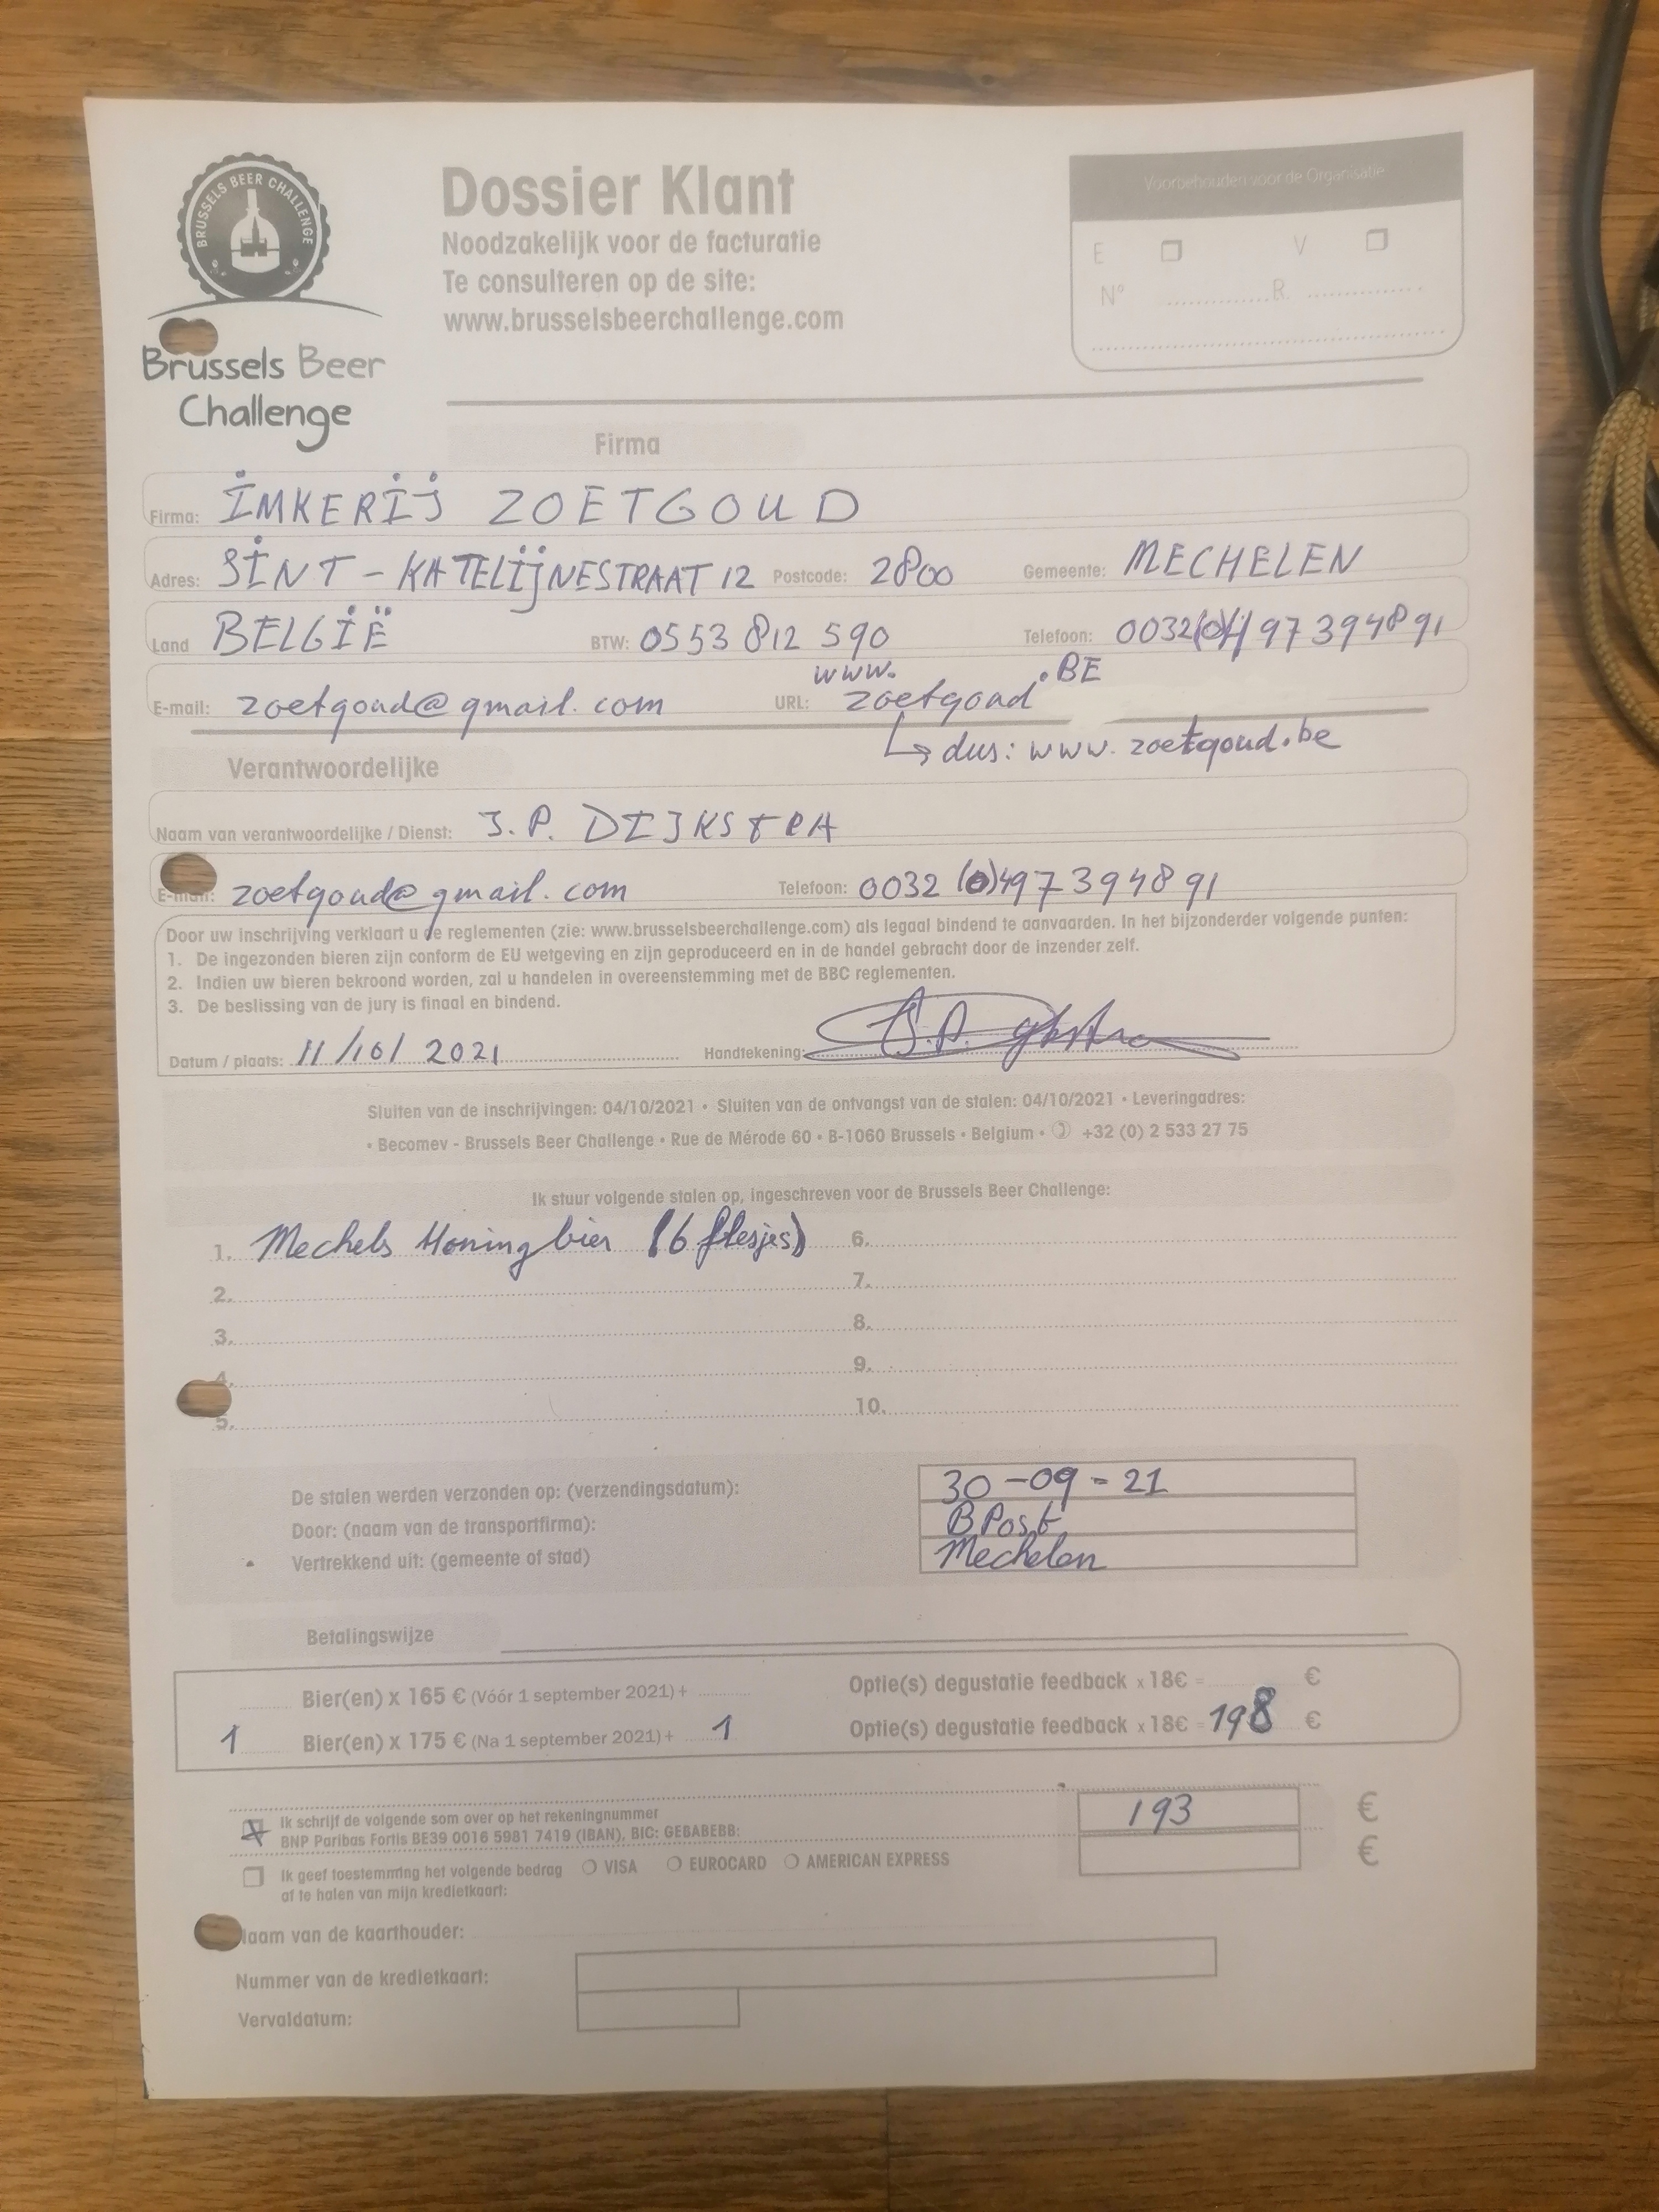 BRUSSELS BEER CHALLENGE
Brussels Beer
Challenge
Dossier Klant
Noodzakelijk voor de facturatie
Te consulteren op de site:
www.brusselsbeerchallenge.com
Voorbehouden voor de Organisatie
E V
N° ..............R. ................
Firma
Firma: IMKERIJ ZOETGOUD
Adres: SINT-KATELIJNESTRAAT 12 Postcode: 2800 Gemeente: MECHELEN
Land BELGIË BTW: 0553 812 590 Telefoon: 0032(0)497394891
E-mail: zoetgoud@gmail.com URL: www.zoetgoud.BE
↳ dus: www.zoetgoud.be
Verantwoordelijke
Naam van verantwoordelijke / Dienst: J.P. DIJKSTRA
E-mail: zoetgoud@gmail.com Telefoon: 0032 (0)497394891
Door uw inschrijving verklaart u de reglementen (zie: www.brusselsbeerchallenge.com) als legaal bindend te aanvaarden. In het bijzonderder volgende punten:
1. De ingezonden bieren zijn conform de EU wetgeving en zijn geproduceerd en in de handel gebracht door de inzender zelf.
2. Indien uw bieren bekroond worden, zal u handelen in overeenstemming met de BBC reglementen.
3. De beslissing van de jury is finaal en bindend.
Datum / plaats: 11/10/2021 Handtekening: J.P. Dijkstra
Sluiten van de inschrijvingen: 04/10/2021 • Sluiten van de ontvangst van de stalen: 04/10/2021 • Leveringadres:
• Becomev - Brussels Beer Challenge • Rue de Mérode 60 • B-1060 Brussels • Belgium • ✆ +32 (0) 2 533 27 75
Ik stuur volgende stalen op, ingeschreven voor de Brussels Beer Challenge:
1. Mechels Honingbier (6 flesjes) 6.
2. 7.
3. 8.
4. 9.
5. 10.
De stalen werden verzonden op: (verzendingsdatum): 30-09-21
Door: (naam van de transportfirma): BPost
Vertrekkend uit: (gemeente of stad) Mechelen
Betalingswijze
Bier(en) x 165 € (Vóór 1 september 2021) + Optie(s) degustatie feedback x 18€ = €
1 Bier(en) x 175 € (Na 1 september 2021) + 1 Optie(s) degustatie feedback x 18€ = 198 €
Ik schrijf de volgende som over op het rekeningnummer
BNP Paribas Fortis BE39 0016 5981 7419 (IBAN), BIC: GEBABEBB: 193 €
Ik geef toestemming het volgende bedrag VISA EUROCARD AMERICAN EXPRESS €
af te halen van mijn kredietkaart:
Naam van de kaarthouder:
Nummer van de kredietkaart:
Vervaldatum: